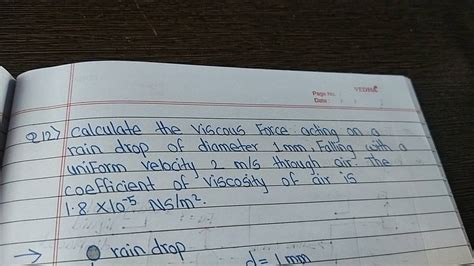 Page No.
VEDHA
Date
Q.12> Calculate the Viscous Force acting on a
rain drop of diameter 1mm, Falling with a
uniForm velocity 2 m/s through air. The
coefficient of Viscosity of air is
1.8 ×10⁻⁵ NS/m².
→ rain drop
d = 1mm